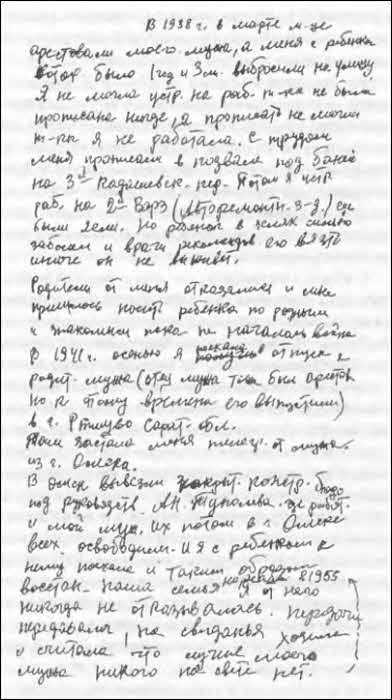 В 1938 г. в марте м-це
арестовали моего мужа, а меня с ребенком
котор. было 1 год и 3 м. выбросили на улицу
Я не могла устр. на раб. т-к не была
прописана нигде, а прописать не могли
т-к я не работала. С трудом
меня прописали в подвале под баней
на 3й Кадашевск. пер. Потом я устр.
раб. на 2й Варз (Авторемонтн. з-д.)
были ясли. Но ребенок в яслях сильно
заболел и врачи рекомендов. его взять
иначе он не выживет.
Родители от меня отказались и мне
пришлось носить ребенка по родным
и знакомым пока не началась война
В 1941 г. осенью я поехала в отпуск к
родит. мужа (отец мужа тоже был арестов.
но к этому времени его выпустили)
в г. Ртищево Сарат. обл.
Там застала меня телегр. от мужа
из г. Омска.
В Омск вывезли констр. бюро
под руководств. А.Н. Туполева где работ.
и мой муж. Их потом в г. Омске
всех освободили. И я с ребенком к
нему поехала и таким образом
восстан. наша семья. Я от него
никогда не отказывалась. Передачи
передавала, на свиданья ходила
и считала что лучше моего
мужа никого на свете нет.